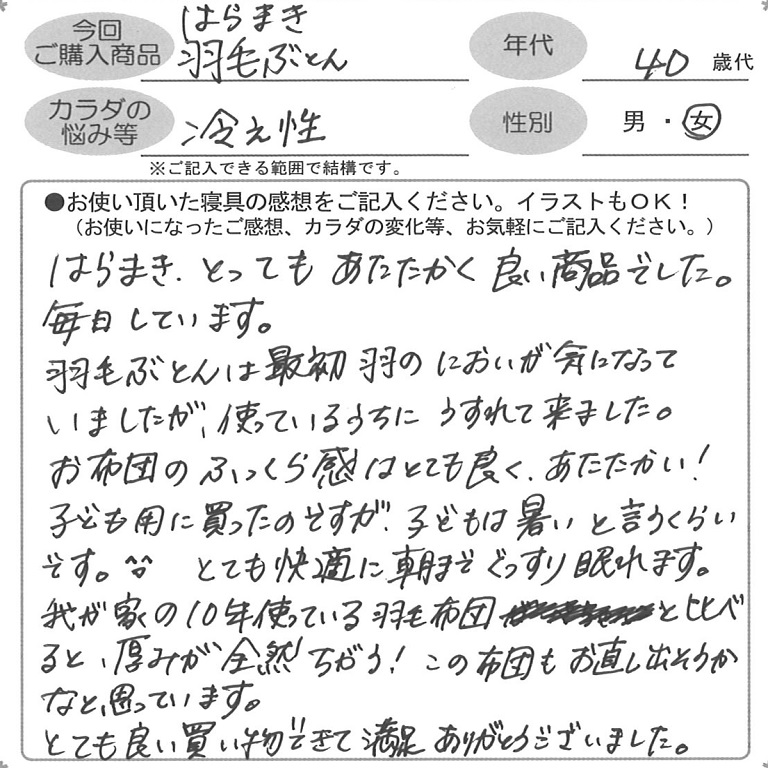 今回
ご購入商品
はらまき
羽毛ぶとん
年代
40 歳代
カラダの
悩み等
冷え性
性別
男・女
※ご記入できる範囲で結構です。
●お使い頂いた寝具の感想をご記入ください。イラストもOK！
（お使いになったご感想、カラダの変化等、お気軽にご記入ください。）
はらまき、とっても あたたかく 良い商品でした。
毎日しています。
羽毛ぶとんは最初 羽の においが気になって
いましたが、使っているうちに うすれて来ました。
お布団の ふっくら感はとても良く、あたたかい！
子ども用に買ったのですが、子どもは暑いと言うくらい
です。^^ とても快適に朝までぐっすり眠れます。
我が家の10年使っている羽毛布団 と比べ
ると、厚みが全然ちがう！この布団もお直し出そうか
なと思っています。
とても良い買い物できて満足 ありがとうございました。